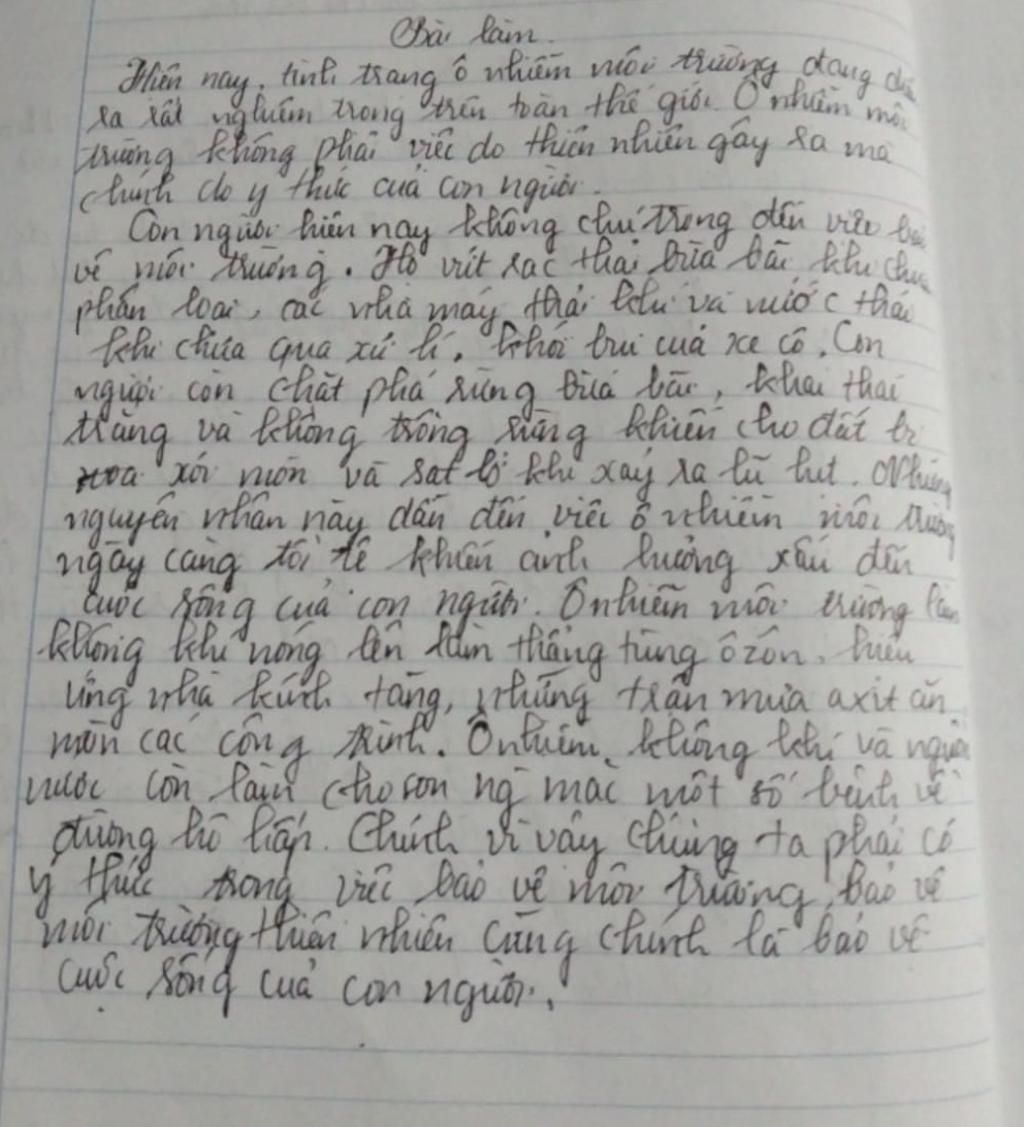 Bài làm.
Hiện nay, tình trạng ô nhiễm môi trường đang diễn
ra rất nghiêm trọng trên toàn thế giới. Ô nhiễm môi
trường không phải việc do thiên nhiên gây ra mà
chính do ý thức của con người.
Con người hiện nay không chú trọng đến việc bảo
vệ môi trường. Họ vứt rác thải bừa bãi khi chưa
phân loại, các nhà máy thải khí và nước thải
khi chưa qua xử lí, khói bụi của xe cộ. Con
người còn chặt phá rừng bừa bãi, khai thác
trắng và không trồng rừng khiến cho đất bị
xói mòn và sạt lở khi xảy ra lũ lụt. Những
nguyên nhân này dẫn đến việc ô nhiễm môi trường
ngày càng tồi tệ khiến ảnh hưởng xấu đến
cuộc sống của con người. Ô nhiễm môi trường làm
không khí nóng lên làm thủng tầng ôzôn, hiệu
ứng nhà kính tăng, những trận mưa axit ăn
mòn các công trình. Ô nhiễm không khí và nguồn
nước còn làm cho con ng mắc một số bệnh về
đường hô hấp. Chính vì vậy chúng ta phải có
ý thức trong việc bảo vệ môi trường, bảo vệ
môi trường thiên nhiên cũng chính là bảo vệ
cuộc sống của con người.